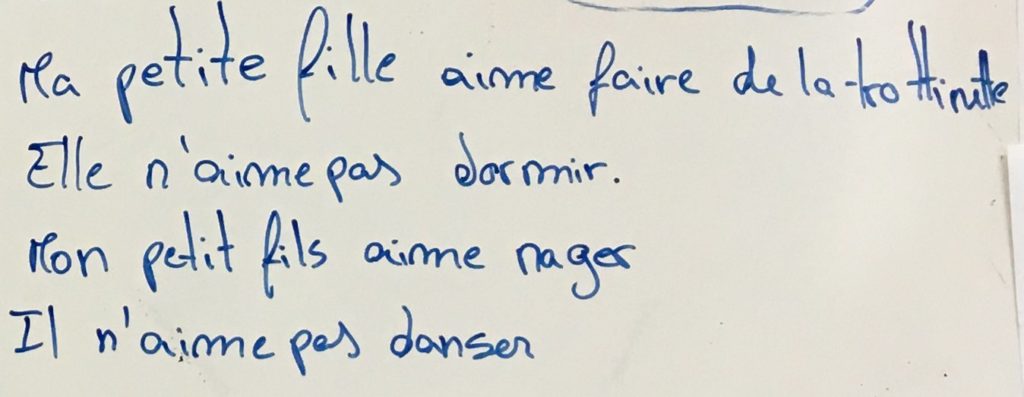 Ma petite fille aime faire de la trottinette
Elle n'aime pas dormir.
Mon petit fils aime nager
Il n'aime pas danser